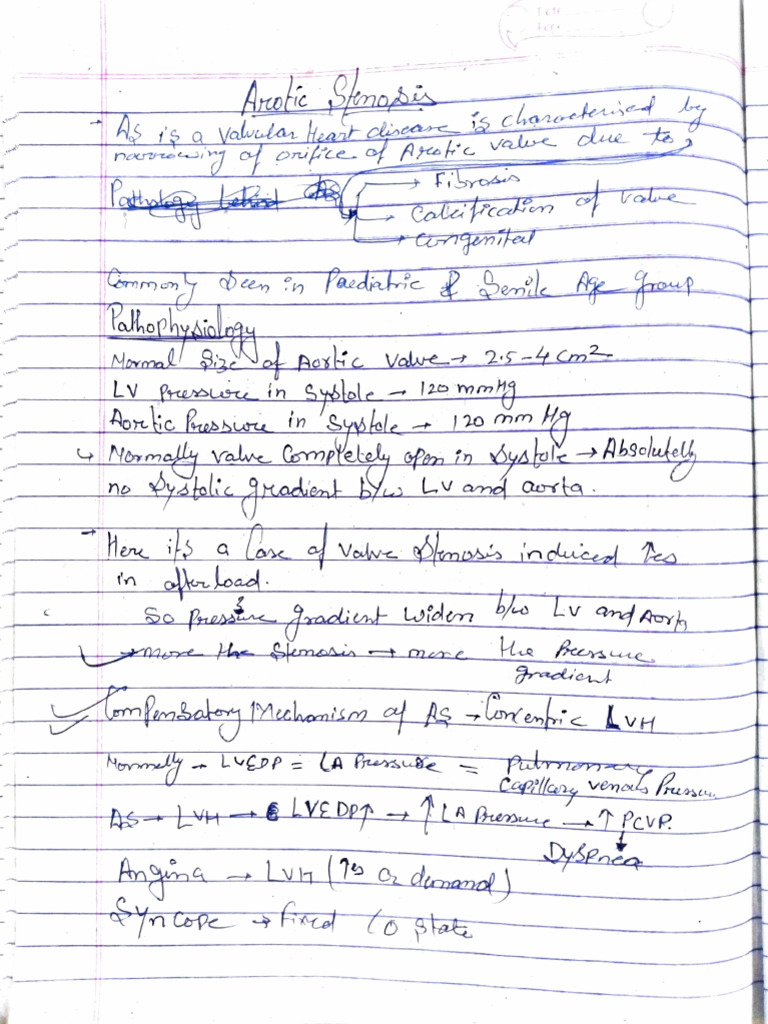 Arotic Stenosis
→ AS is a Valvular Heart disease is characterised by
narrowing of orifice of Arotic valve due to,
Pathology behind AS
→ Fibrosis
→ Calcification of valve
→ congenital
Commonly seen in Paediatric & Senile Age Group
Pathophysiology
Normal Size of Aortic Valve → 2.5-4 cm2
LV Pressure in Systole → 120 mmHg
Aortic Pressure in Systole → 120 mm Hg
↳ Normally valve completely open in Systole → Absolutely
no Systolic gradient b/w LV and aorta.
→ Here it's a Case of Valve Stenosis induced ↑es
in afterload.
So Pressure gradient widen b/w LV and Aorta
→ more the Stenosis → more the Pressure
gradient
Compensatory Mechanism of AS → Concentric LVH
Normally → LVEDP = LA Pressure = Pulmonary
Capillary venous Pressure
AS → LVH → LVEDP↑ → ↑ LA Pressure → ↑ PCVP.
↓
Dyspnea
Angina → LVH (↑es O2 demand)
Syncope → Fixed CO State